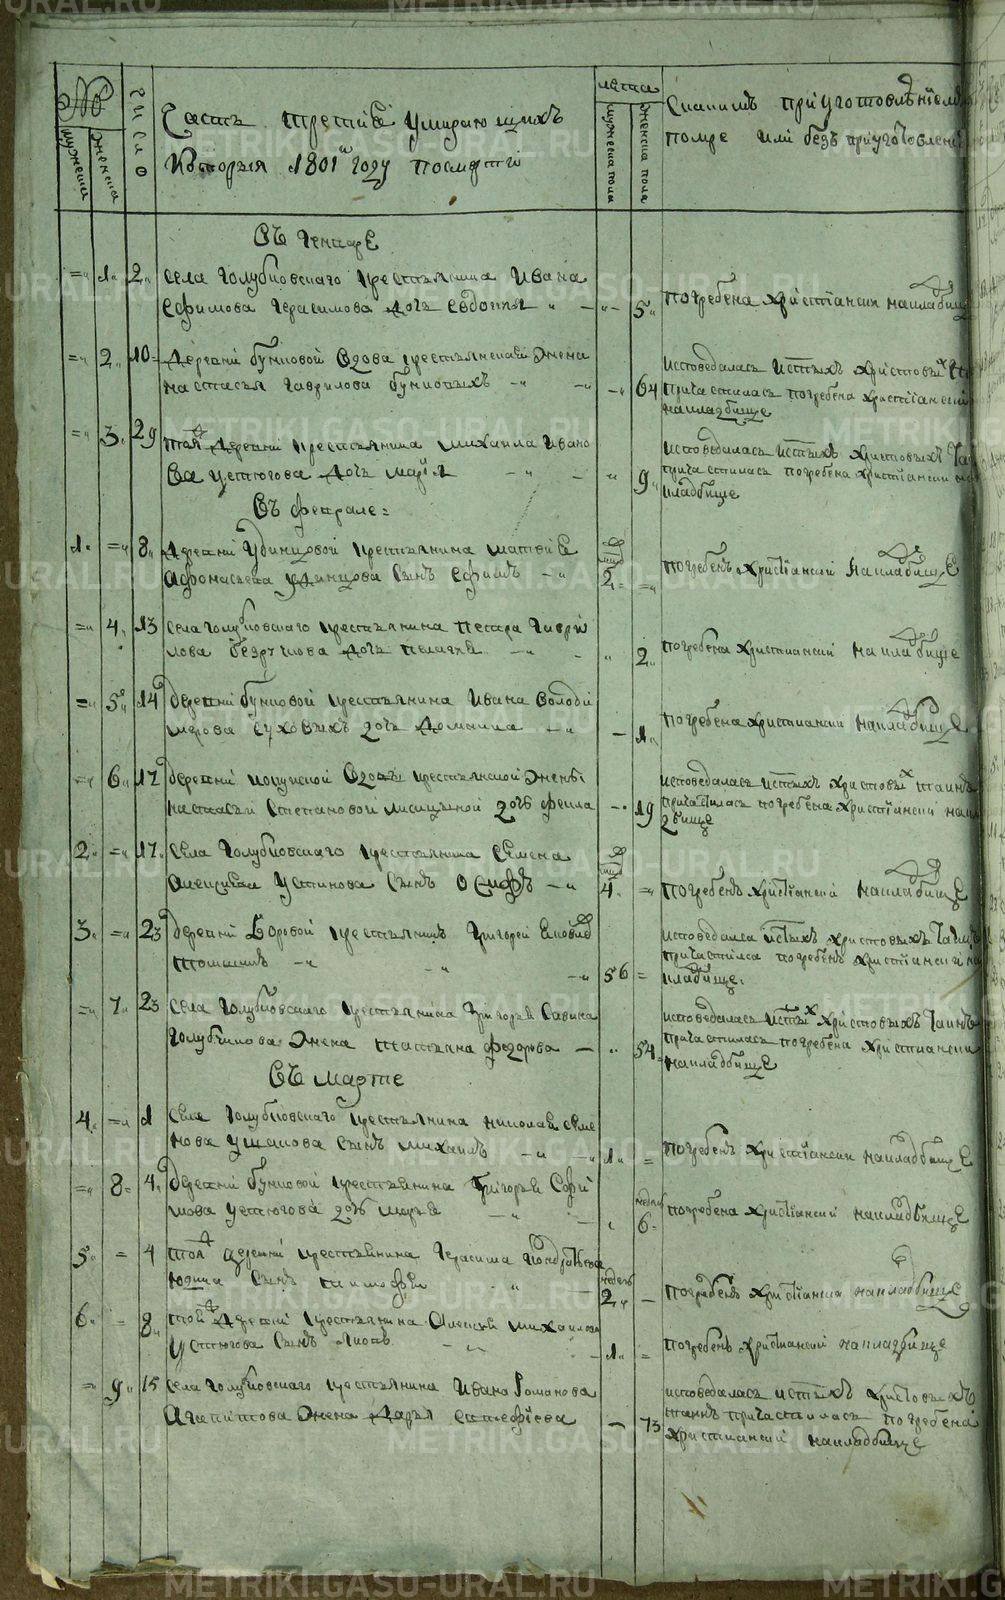 №
мужеска
женска
число
Часть третия умирающихъ
которыя 1801 году померли
лета
мужеска пола
женска пола
Скакимъ приуготовлениемъ
помре или безъ приуготовлени
Въ Генваре
=" 1" 2" Села Голубковскаго крестьянина Ивана
Ефимова Герасимова дочь Евдокия " - - 5" погребена христиански накладбище
=" 2" 10 Деревни Бунковой вдова крестьянская жена
Настасья Гаврилова Бунковыхъ - 64
исповедалась истыхъ христовых
причастилась погребена христиански
накладбище
=" 3" 29 той Деревни крестьянина Михаила Ивано
ва Устюгова дочь Мария - " 9"
исповедалась истыхъ христовыхъ Таи
причастилась погребена христиански на
кладбище
Въ Феврале =
1" =" 8" Деревни Удинцовой крестьянина Матвея
Афонасьева Удинцова сынъ Ефимъ - " 2" =" погребенъ христиански накладбище
=" 4" 13 Села Голубковскаго крестьянина Петра Гаври
лова дочь Пелагия - " 2" погребена христиански накладбище
=" 5" 14 деревни Бунковой крестьянина Ивана Володи
мерова Суховыхъ дочь Домника - " - 1" погребена христиански накладбище
=" 6" 17 деревни вдовы крестьянской жены
Настасьи Степановой дочь Фекла - 19
исповедалась истыхъ христовых таинъ
причастилась погребена христиански накла
дбище
2" =" 17" Села Голубковскаго крестьянина Семена
Алексиева Устинова сынъ Осифъ - " 4" =" погребенъ христиански накладбище
3" =" 23 деревни Боровой крестьянинъ Григорей
- " - " - " 56 =
исповедался истыхъ христовыхъ Таинъ
причастился погребенъ христиански на
кладбище.
=" 7" 23 Села Голубковскаго крестьянина Григорья Савина
Голубчикова жена Татьяна Федорова - " 54
исповедалась истых христовыхъ Таинъ
причастилась погребена христиански
накладбище
Въ Марте
4" =" 1 Села Голубковскаго крестьянина Николая Семе
нова Ушакова сынъ Михаилъ - " - " 1" = погребенъ христиански накладбище
=" 8" 4" деревни Бунковой крестьянина Григорья Софи
Устюгова дочь Марья - " - " недель 6" погребена христиански накладбище
5" = 4 той деревни крестьянина Герасима Кондратьева
Юдина сынъ Тимофей " - недель 2" - погребенъ христиански накладбище
6" - 8" той Деревни крестьянина Алексея Михаилова
Устюгова сынъ - " - 1" = погребенъ христиански накладбище
=" 9" 15 Села Голубковскаго крестьянина Ивана Романова
Агапитова жена Дарья Стефиева - 73
исповедалась истыхъ христовыхъ
таинъ причастилась погребена
христиански накладбище
METRIKI.GASO-URAL.RU